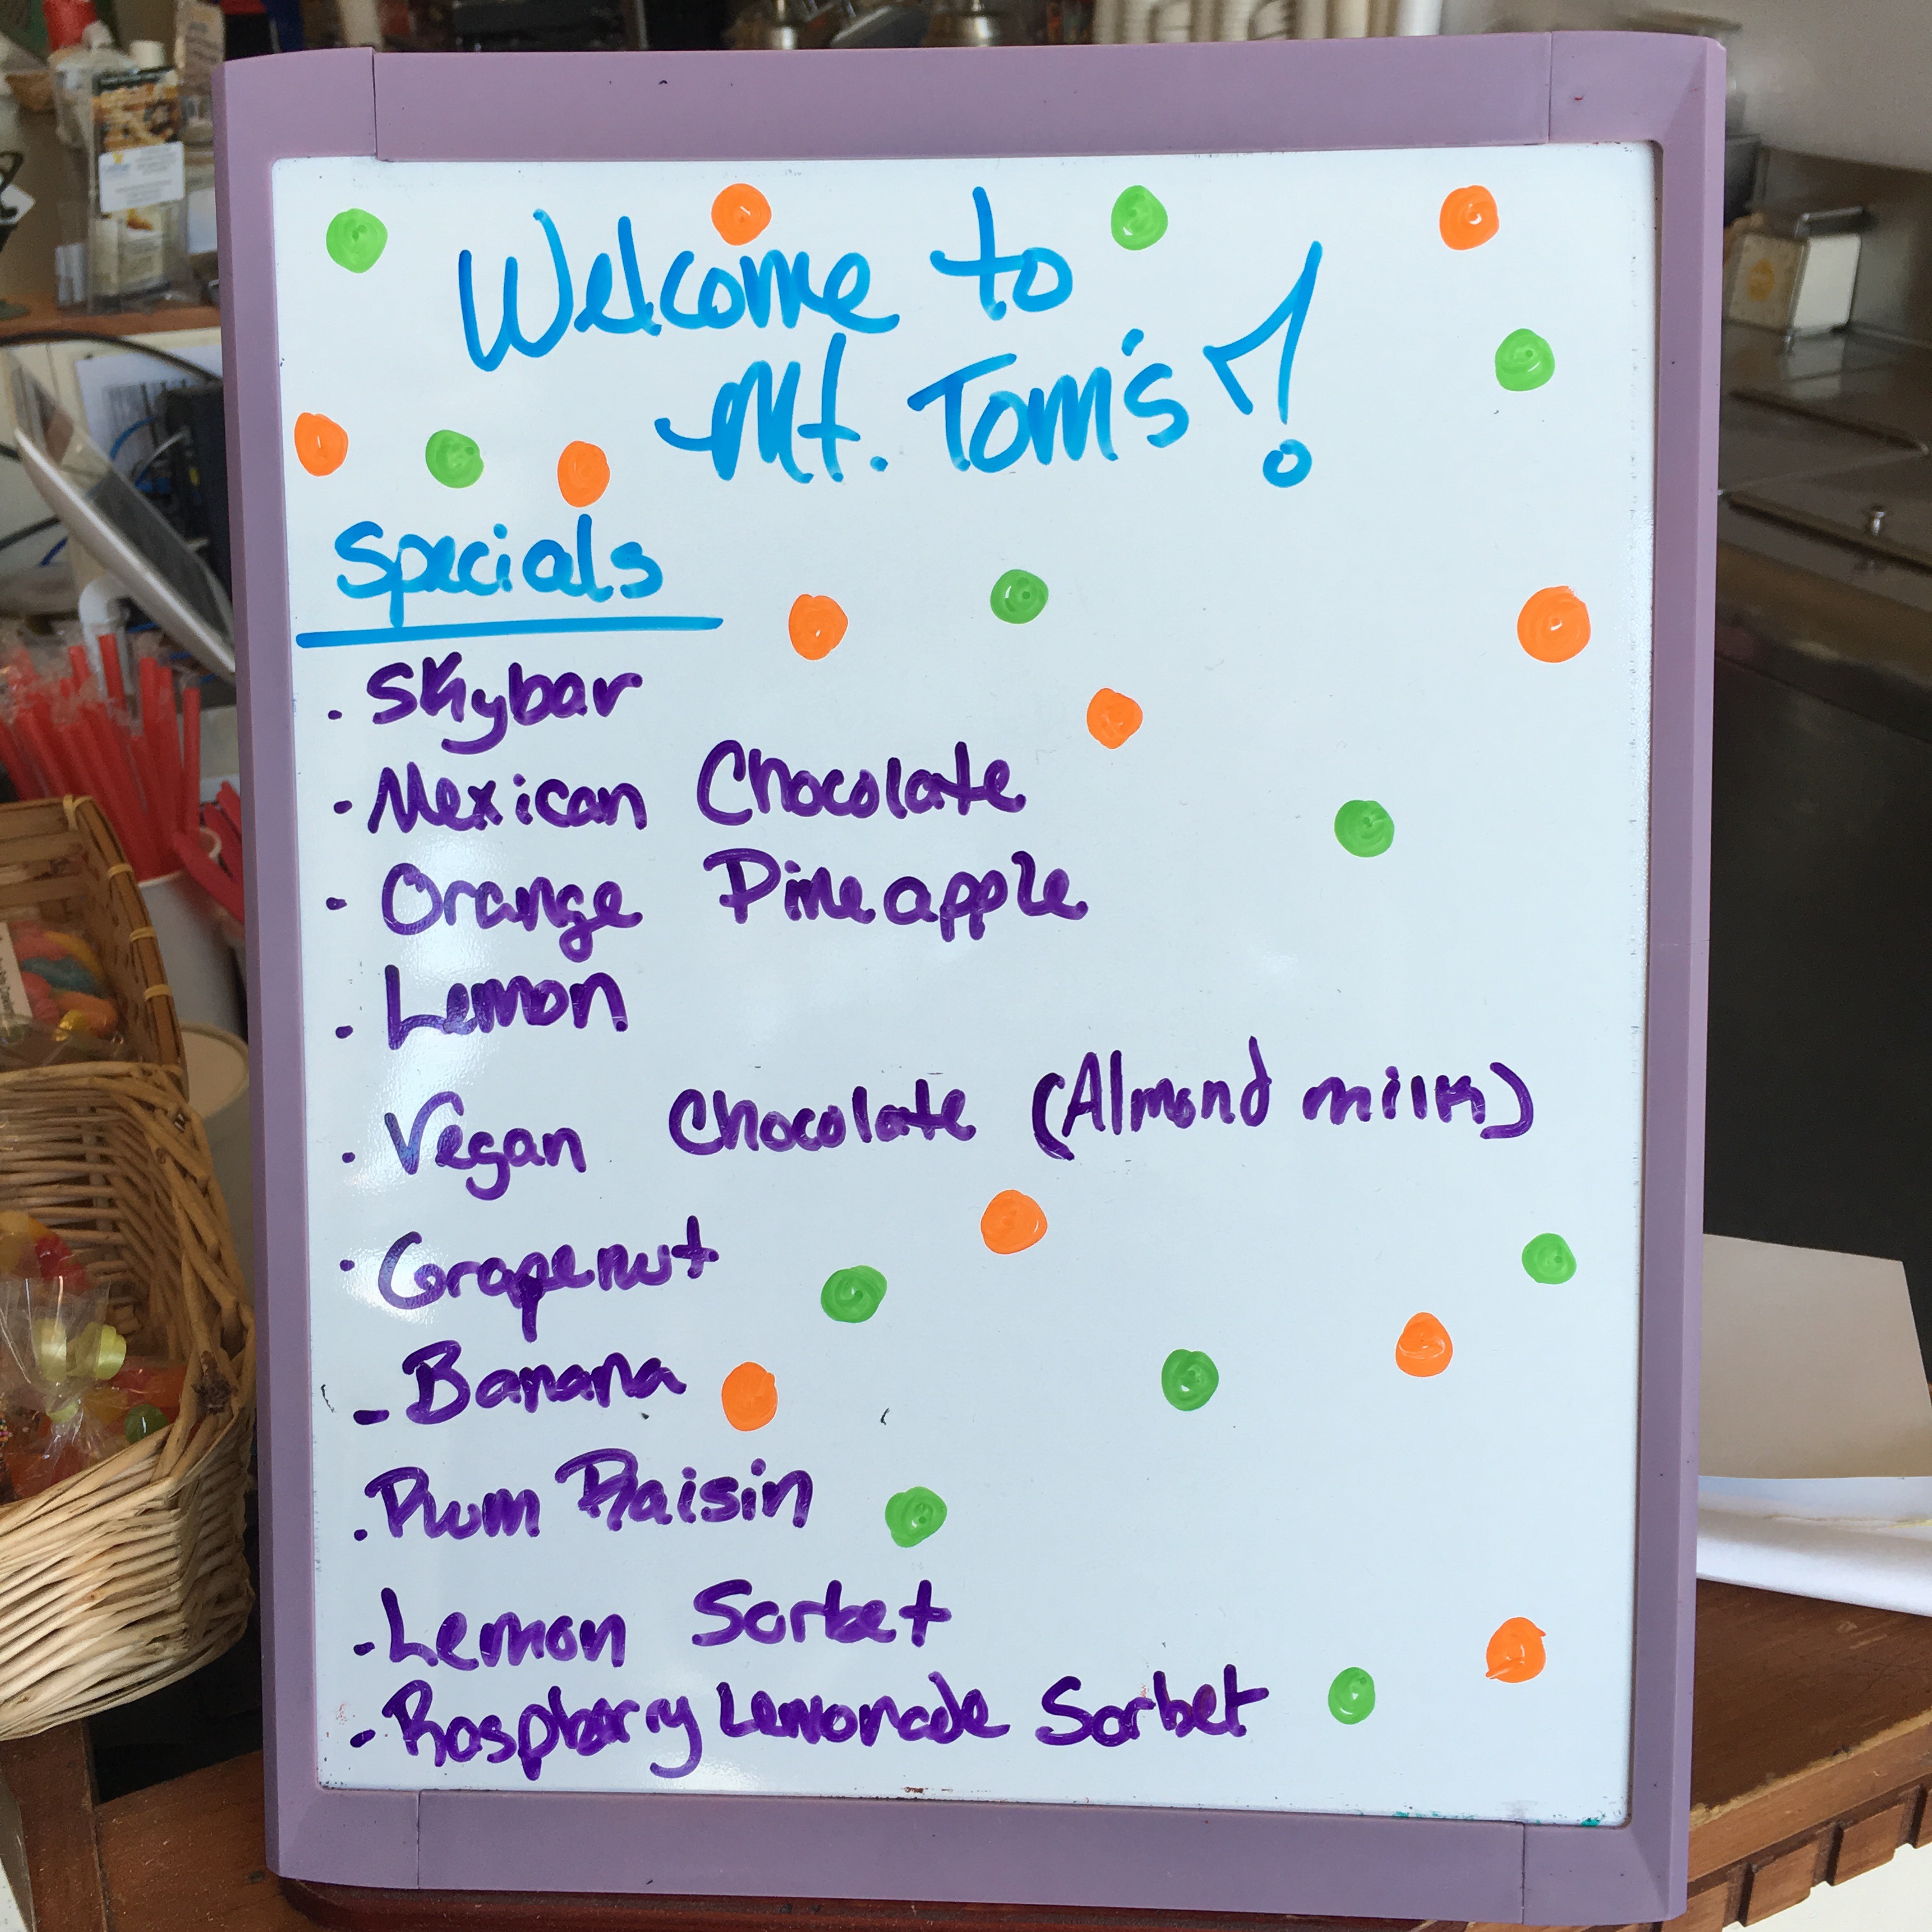 Welcome to
Mt. Tom's!
Specials
· Skybar
· Mexican Chocolate
· Orange Pineapple
· Lemon
· Vegan Chocolate (Almond milk)
· Grapenut
- Banana
· Rum Raisin
- Lemon Sorbet
- Raspberry Lemonade Sorbet